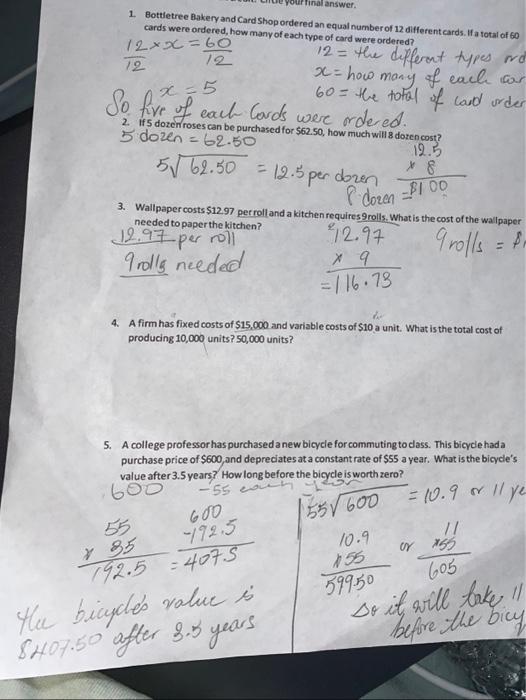 your final answer.
1. Bottletree Bakery and Card Shop ordered an equal number of 12 different cards. If a total of 60
cards were ordered, how many of each type of card were ordered?
12 × x = 60
12 12
12 = the different types
x = how many of each
x = 5
60 = the total of card order
So five of each Cards were ordered.
2. If 5 dozen roses can be purchased for $62.50, how much will 8 dozen cost?
5 dozen = 62.50
12.5
× 8
5√62.50 = 12.5 per dozen
8 dozen = $100
3. Wallpaper costs $12.97 per roll and a kitchen requires 9 rolls. What is the cost of the wallpaper
needed to paper the kitchen?
12.97 per roll
12.97
9 rolls =
9 rolls needed
× 9
= 116.73
4. A firm has fixed costs of $15,000 and variable costs of $10 a unit. What is the total cost of
producing 10,000 units? 50,000 units?
5. A college professor has purchased a new bicycle for commuting to class. This bicycle had a
purchase price of $600, and depreciates at a constant rate of $55 a year. What is the bicycle's
value after 3.5 years? How long before the bicycle is worth zero?
600 -55 each year
55√600 = 10.9 or 11
600
55
-192.5
× 35
192.5 = 407.5
10.9
×55
59950
or
11
×55
605
The bicycle's value is
$407.50 after 3.5 years
So it will take 11
before the